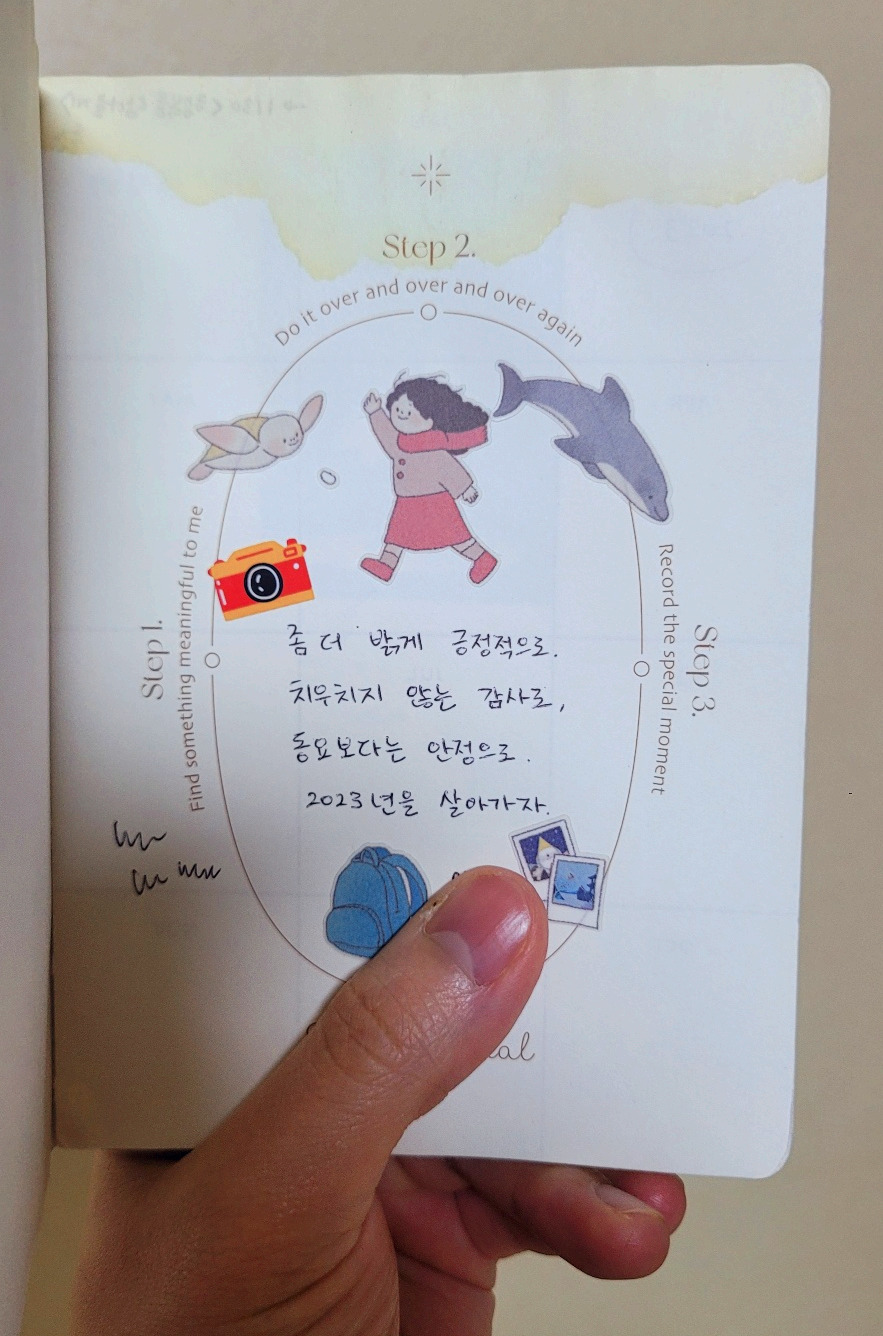 Step 2.
Do it over and over and over again
Step 1.
Find something meaningful to me
Step 3.
Record the special moment
좀 더 밝게 긍정적으로.
치우치지 않는 감사로,
동요보다는 안정으로.
2023년을 살아가자.